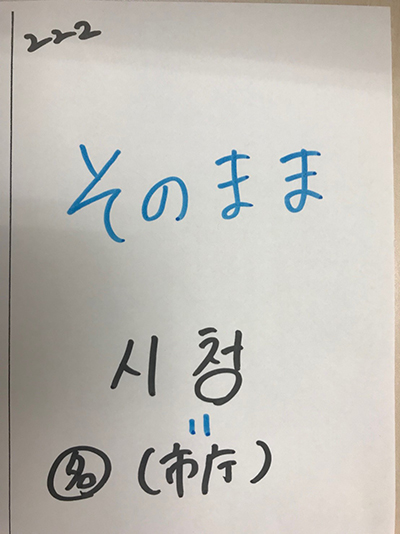 222
そのまま
시청
=
㊔ (市庁)